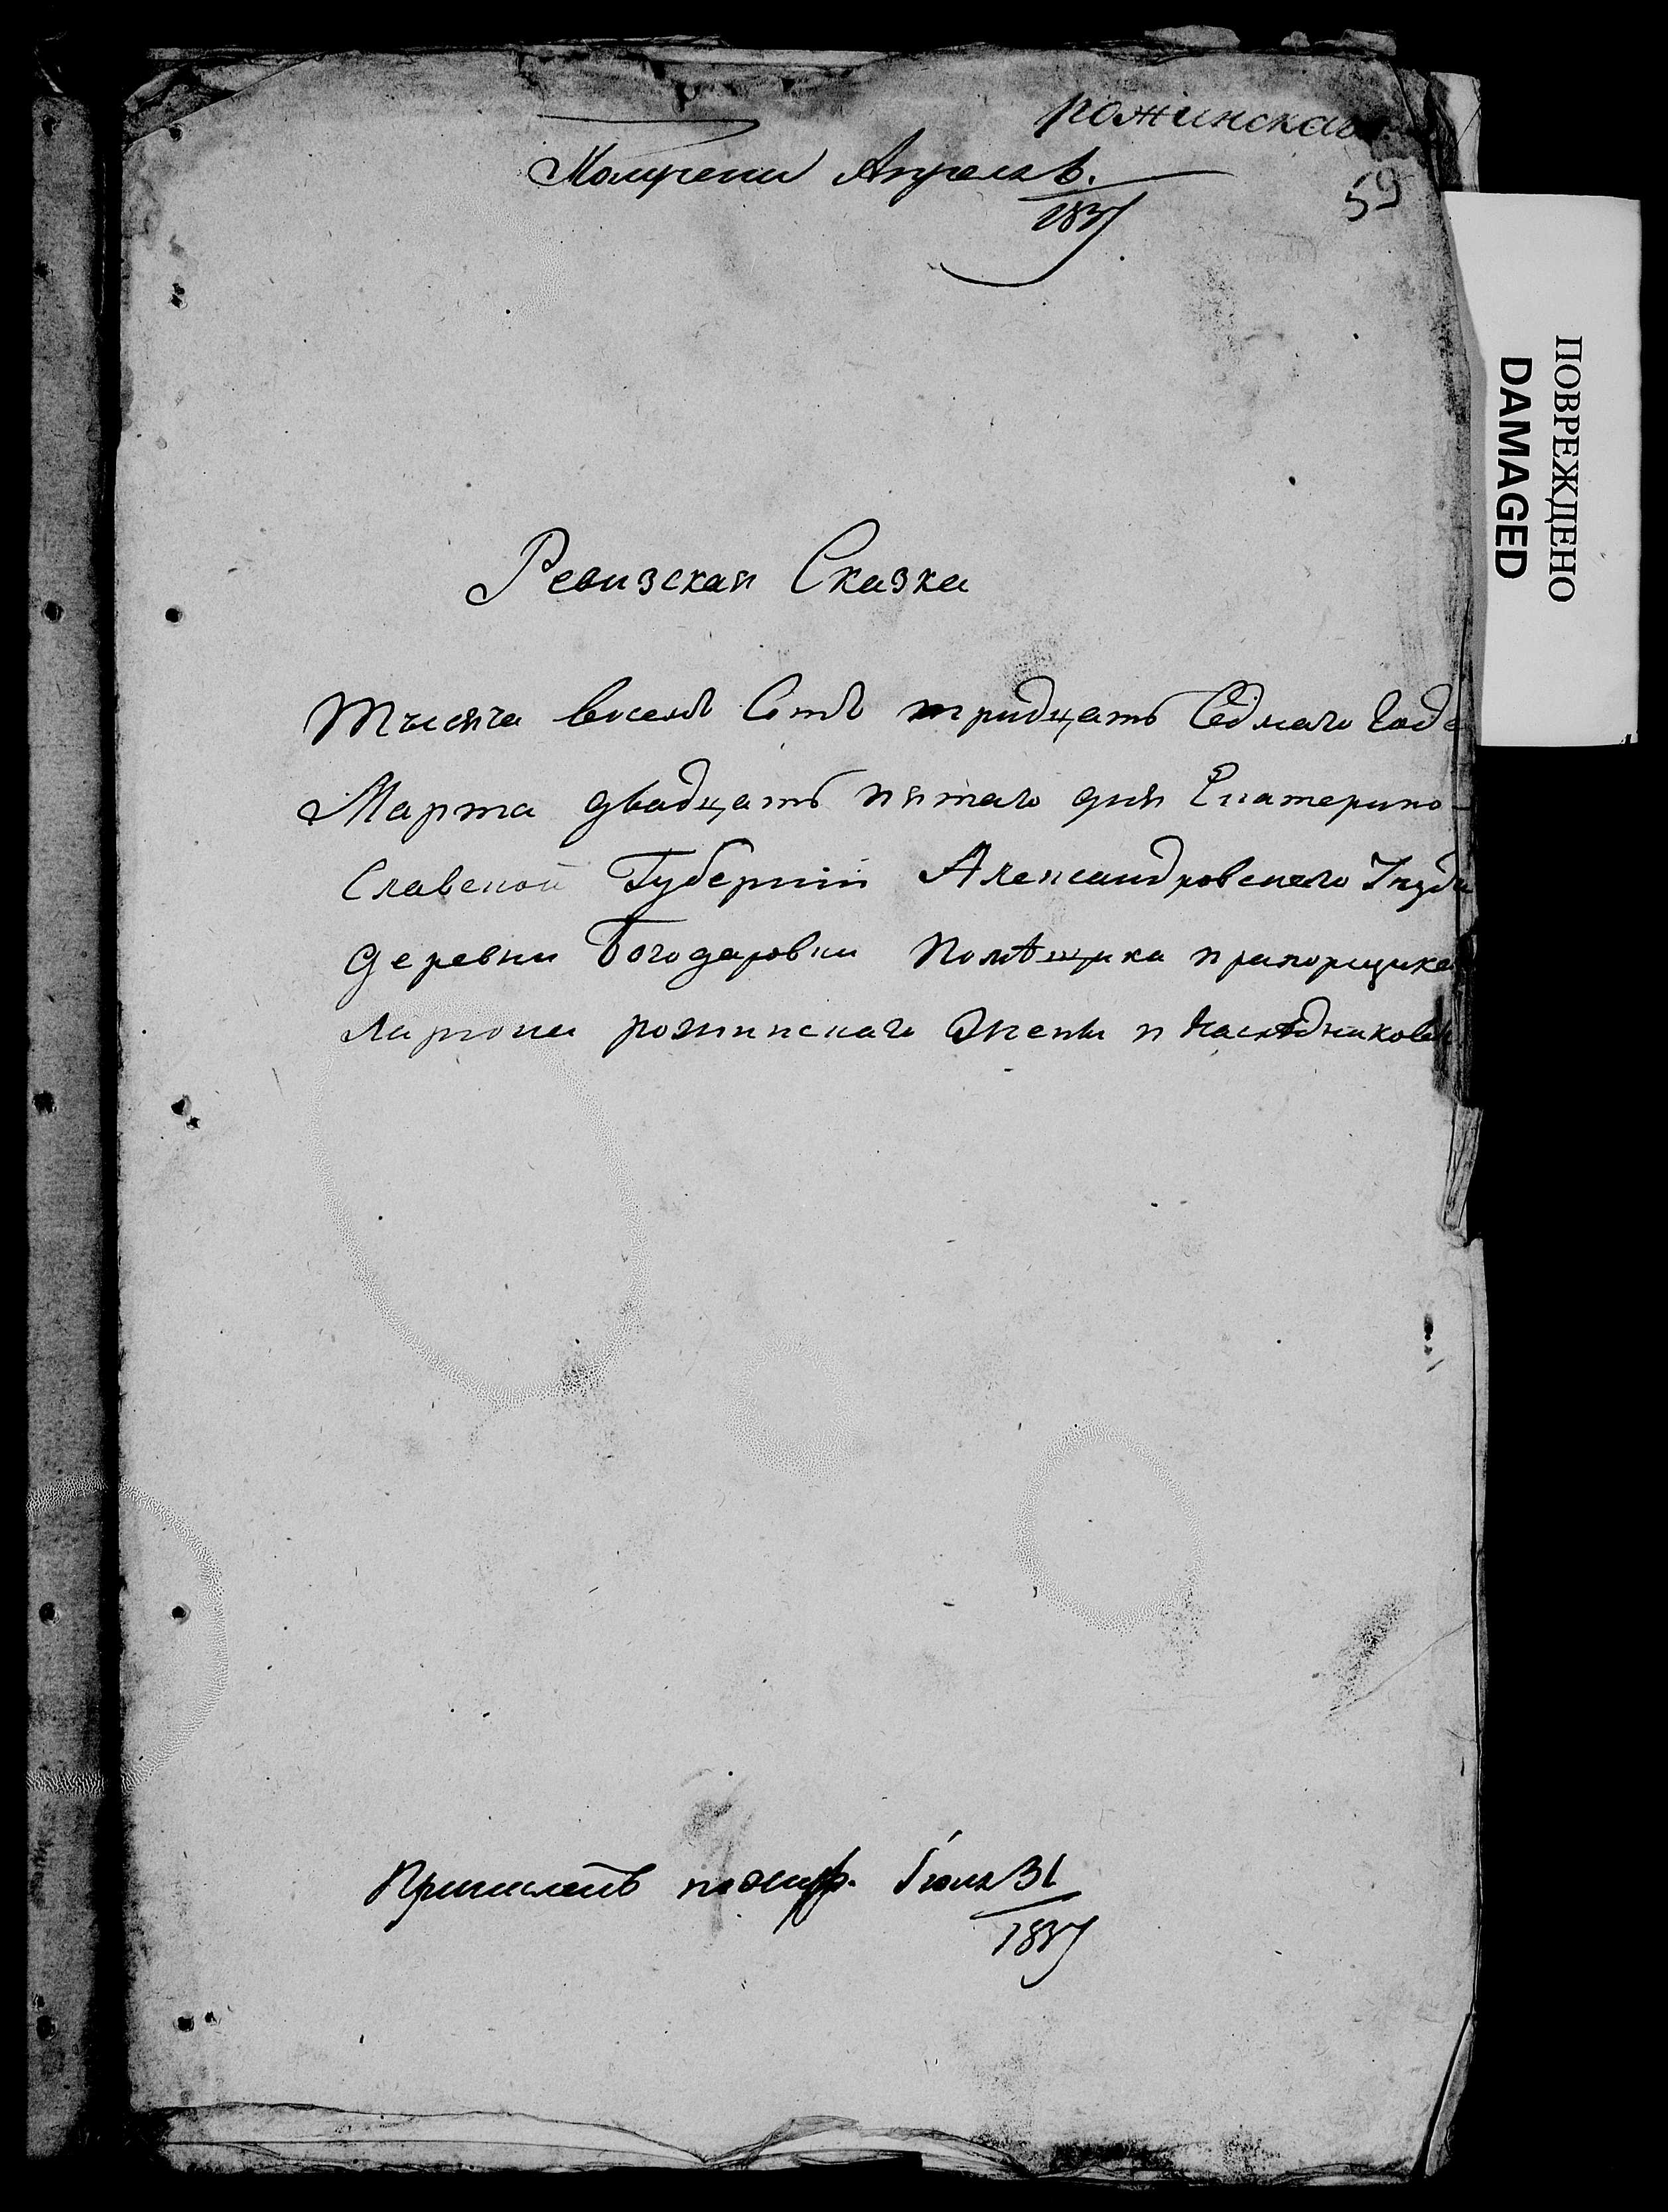 рожинскаго
59
Получена Апреля 6.
1837
ПОВРЕЖДЕНО
DAMAGED
Ревизская Сказка
Тысяча восемь Сотъ тридцать Седмаго Года
Марта двадцать пятаго дня Екатерино-
Славской Губернии Александровского Уезда
деревни Богодаровки Помѣщика прапорщика
Лариона рожинскаго Жены и наслѣдниковъ
Іюля 31
1837